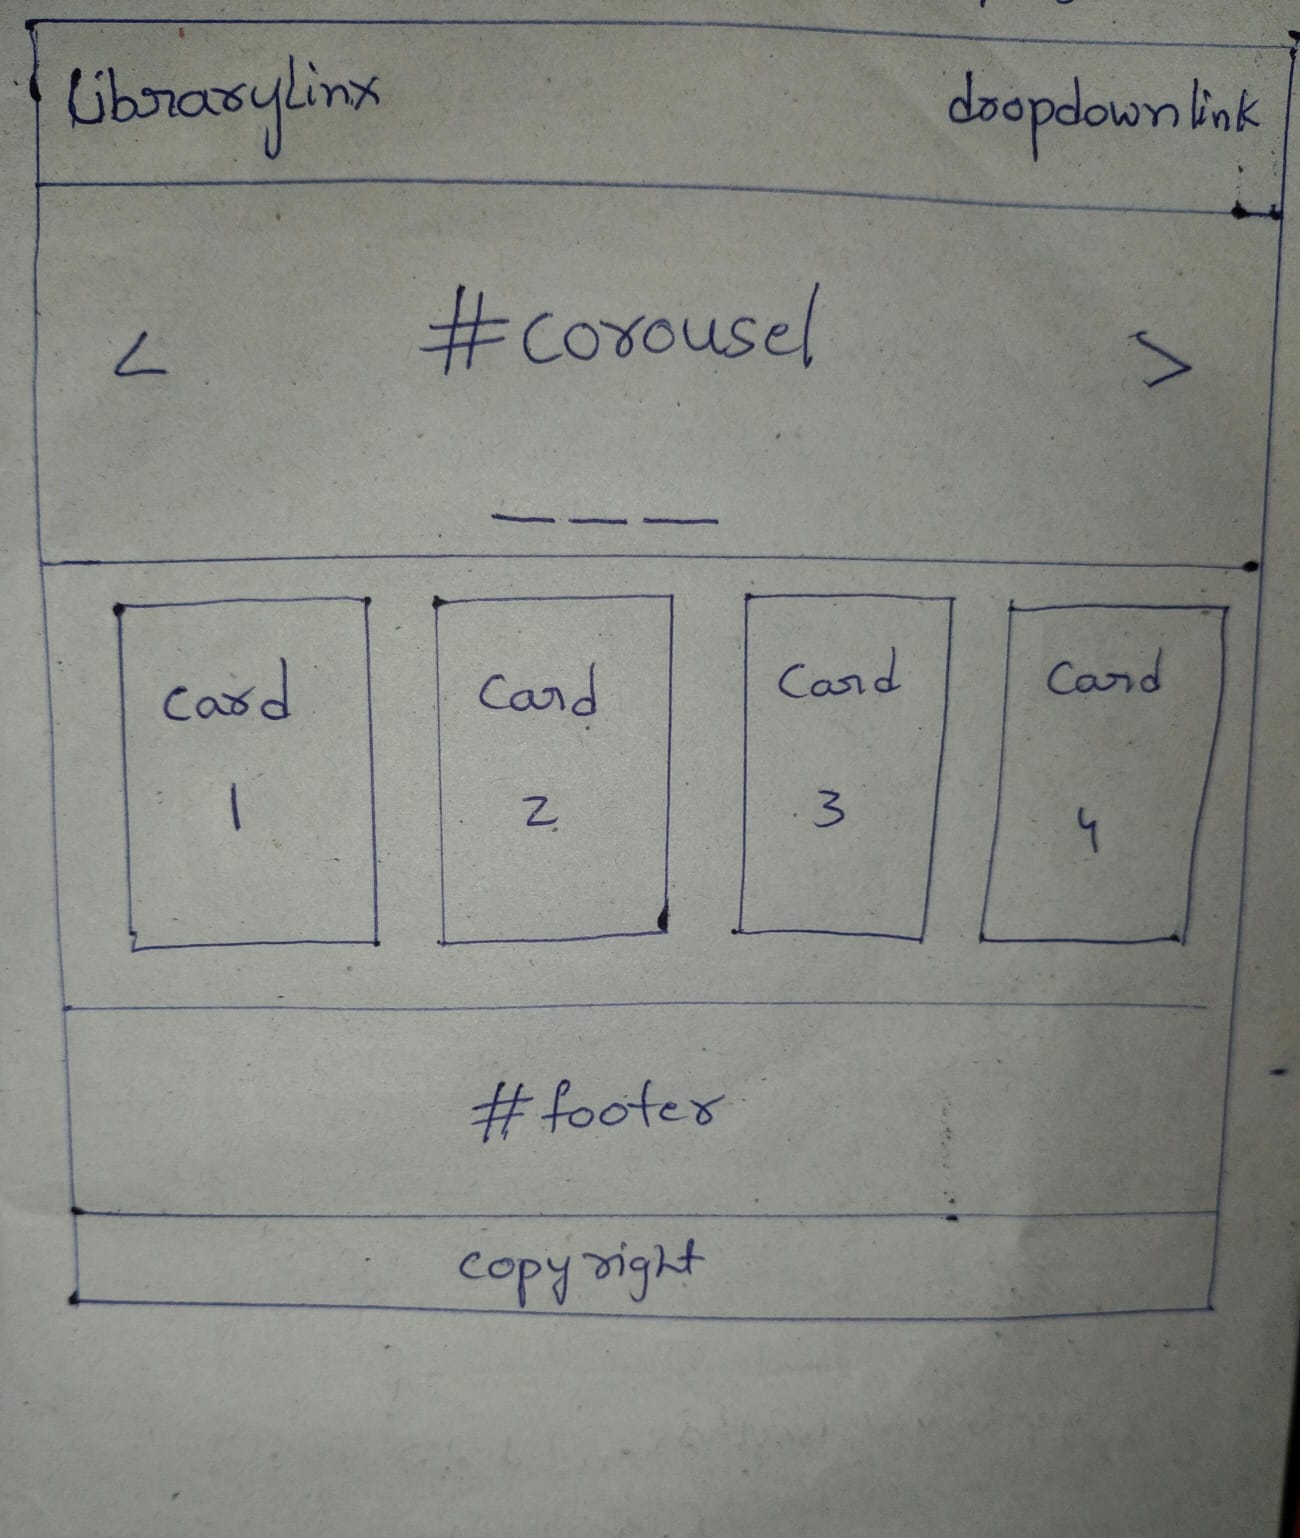 LibraryLinx dropdown link
< #corousel >
Card Card Card Card
1 2 3 4
#footer
copyright